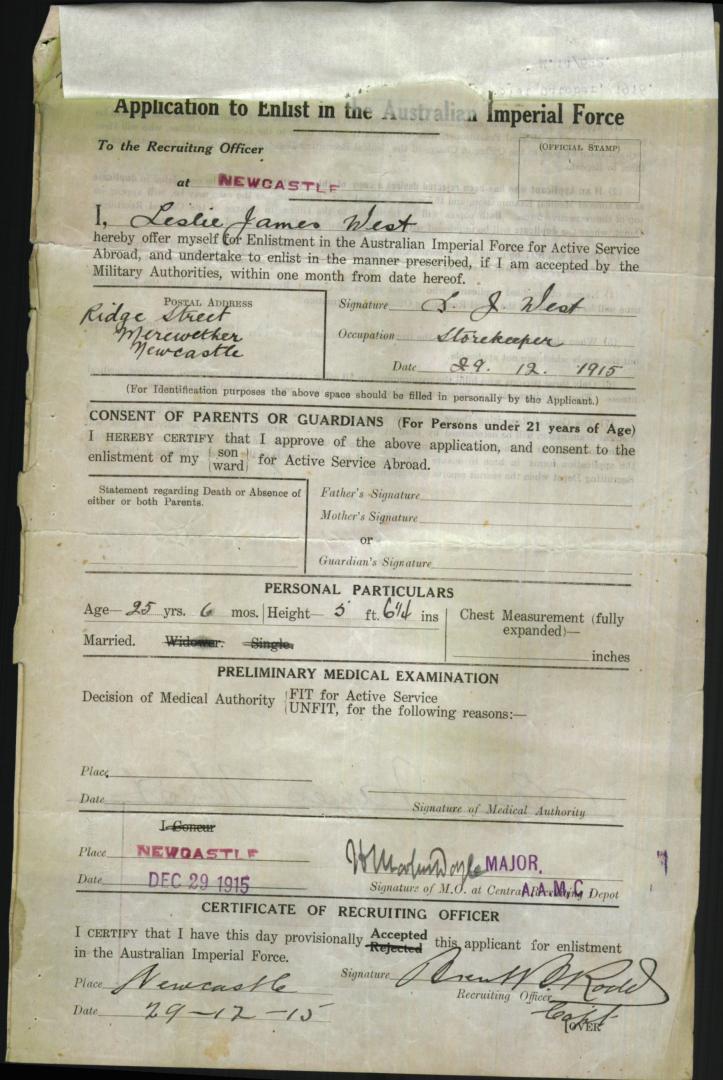 Application to Enlist in the Australian Imperial Force
To the Recruiting Officer
(OFFICIAL STAMP)
at NEWCASTLE
I, Leslie James West
hereby offer myself for Enlistment in the Australian Imperial Force for Active Service
Abroad, and undertake to enlist in the manner prescribed, if I am accepted by the
Military Authorities, within one month from date hereof.
POSTAL ADDRESS
Ridge Street
Merewether
Newcastle
Signature L. J. West
Occupation Storekeeper
Date 29. 12. 1915
(For Identification purposes the above space should be filled in personally by the Applicant.)
CONSENT OF PARENTS OR GUARDIANS (For Persons under 21 years of Age)
I HEREBY CERTIFY that I approve of the above application, and consent to the
enlistment of my (son ward) for Active Service Abroad.
Statement regarding Death or Absence of
either or both Parents.
Father's Signature
Mother's Signature
or
Guardian's Signature
PERSONAL PARTICULARS
Age—25 yrs. 6 mos. Height—5 ft. 6¼ ins
Chest Measurement (fully
expanded)—
inches
Married. Widower. Single.
PRELIMINARY MEDICAL EXAMINATION
Decision of Medical Authority {FIT for Active Service
{UNFIT, for the following reasons:—
Place
Date
Signature of Medical Authority
I Concur
Place NEWCASTLE
MAJOR,
Date DEC 29 1915
Signature of M.O. at Central Recruiting Depot
A.A.M.C.
CERTIFICATE OF RECRUITING OFFICER
I CERTIFY that I have this day provisionally Accepted Rejected this applicant for enlistment
in the Australian Imperial Force.
Place Newcastle
Signature
Recruiting Officer
Capt
Date 29-12-15
[OVER